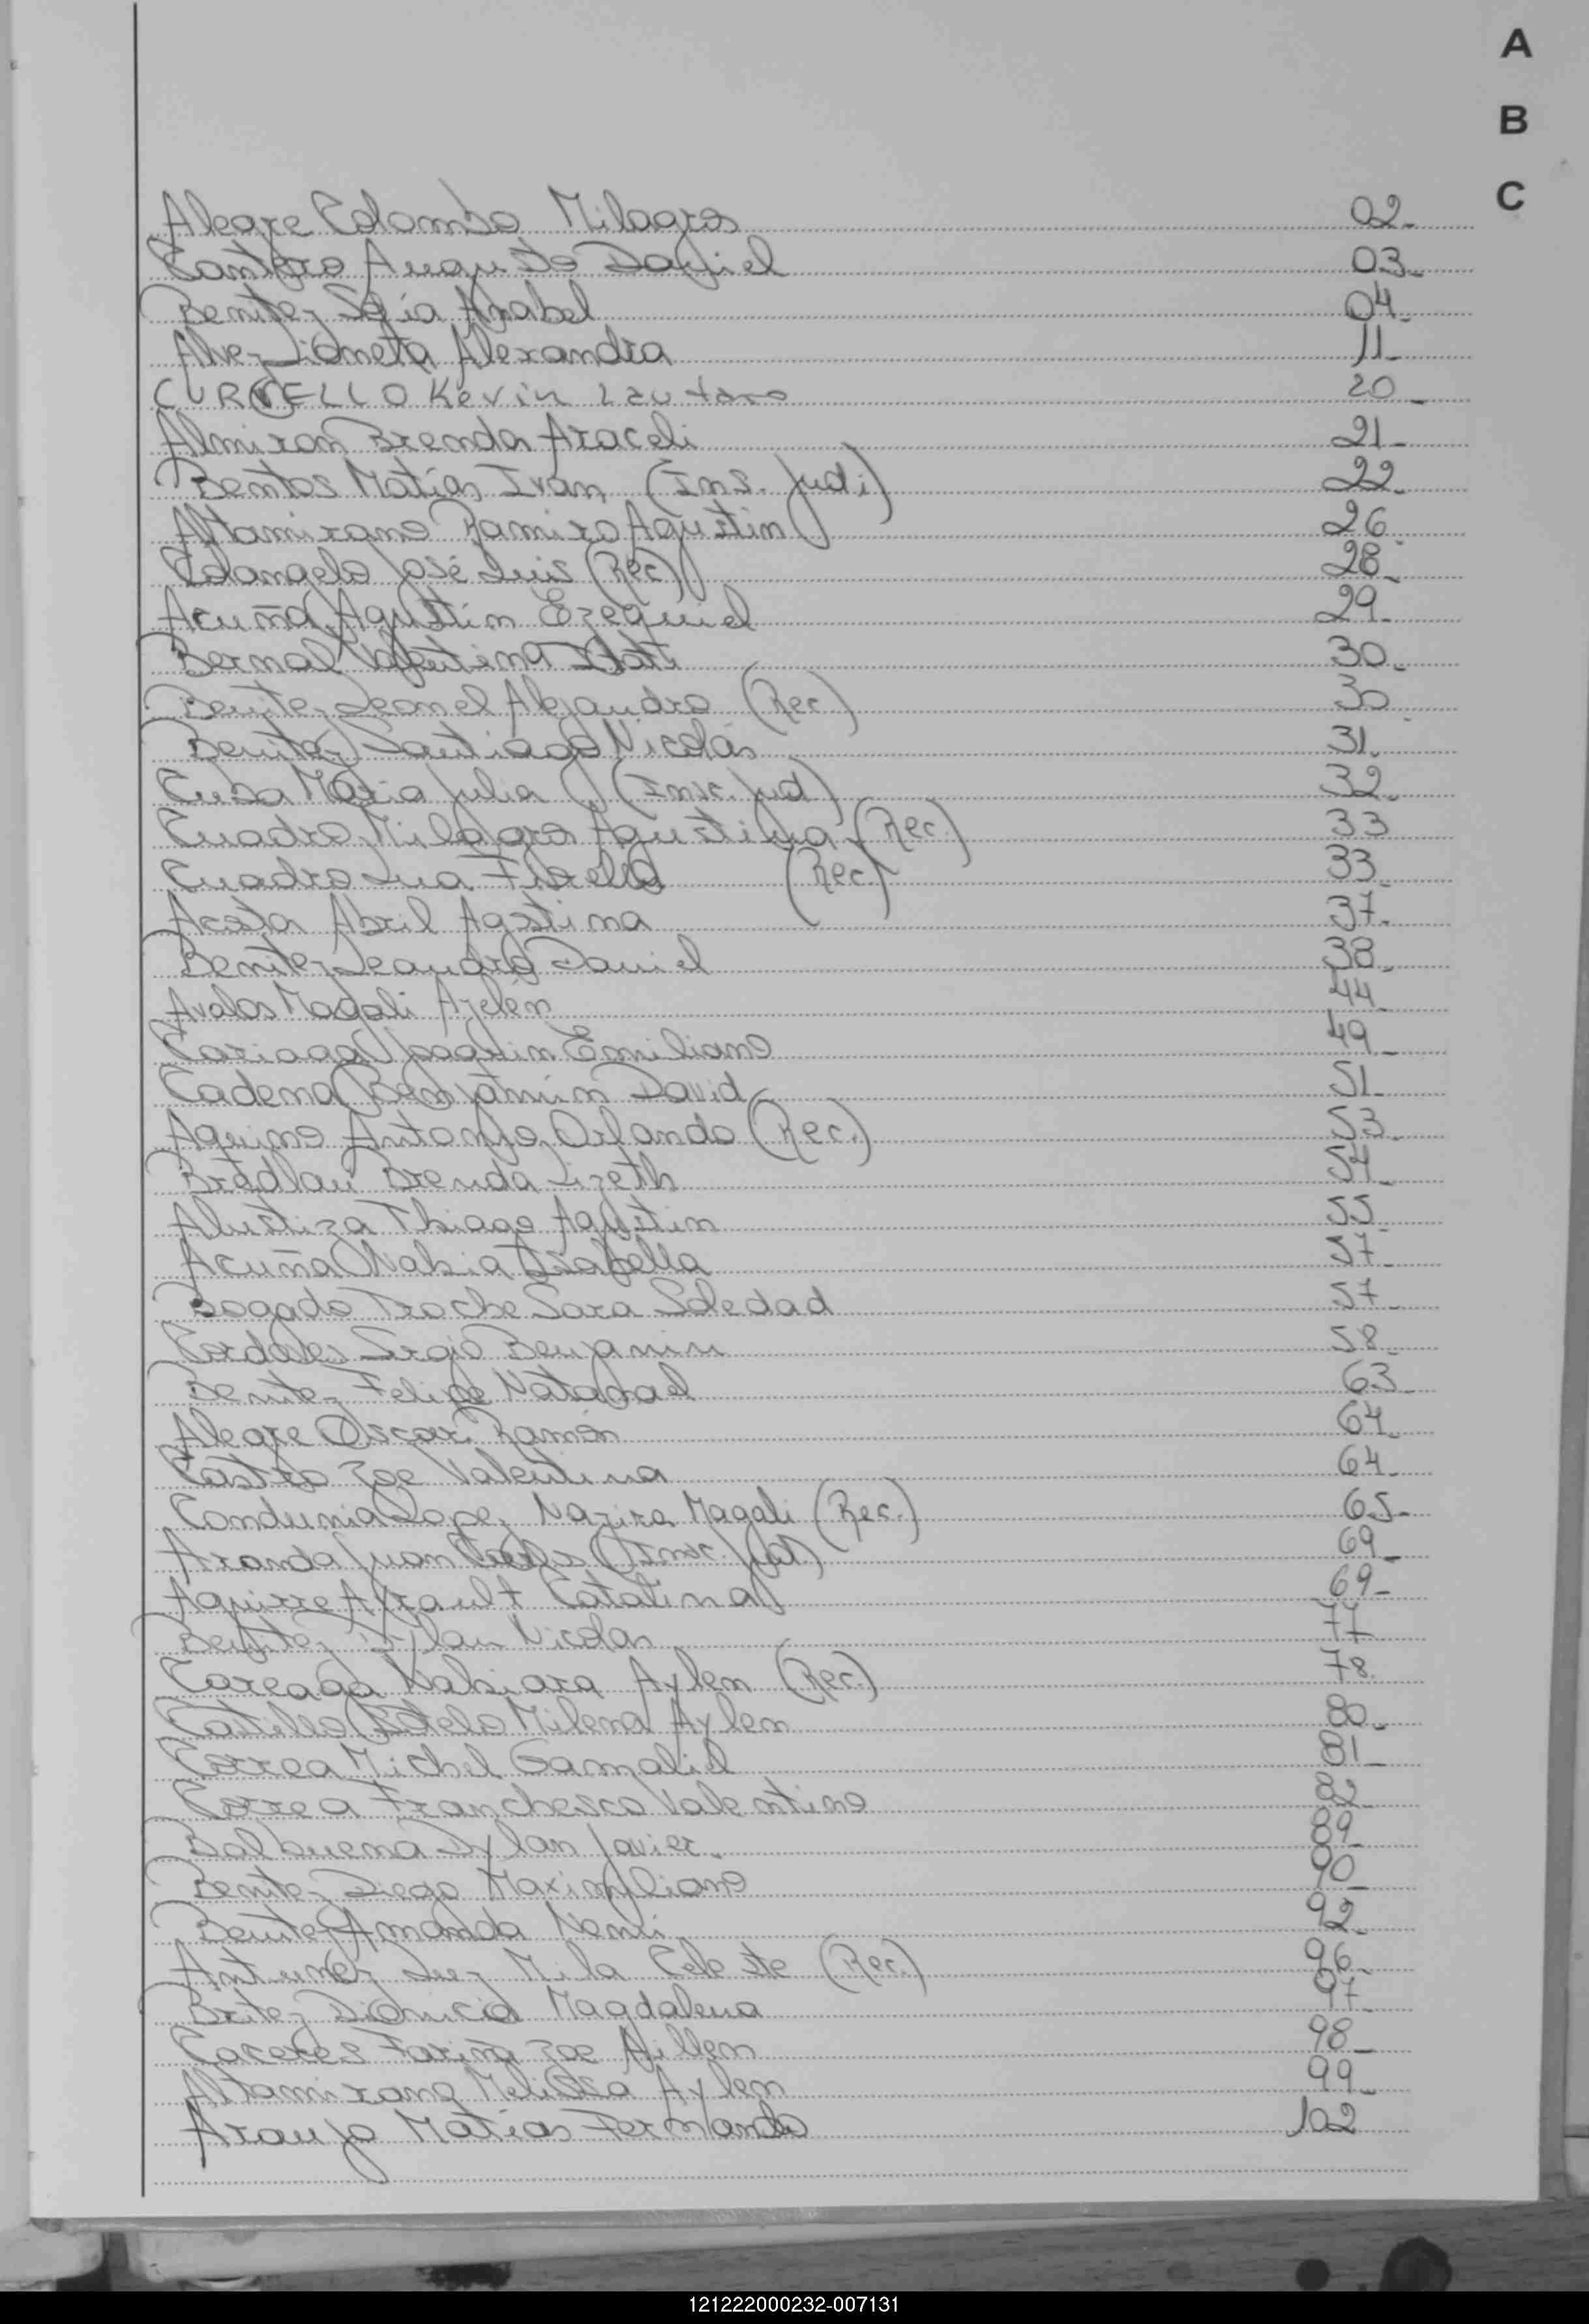 A
B
C
Alegre Colombo Milagros 02-
Cantero Augusto Daniel 03-
Benitez Sofia Anabel 04-
Alvez Fiometa Alexandra 11-
CURVELLO Kevin Lautaro 20-
Almiron Brenda Araceli 21-
Bentos Matias Ivan (Ins. Judi) 22-
Altamirano Ramiro Agustin 26-
Colangelo José Luis (Rec) 28-
Acuña Agustin Ezequiel 29-
Bernal Valentina 30-
Benitez Leonel Alejandro (Rec.) 30-
Benitez Santiago Nicolás 31-
Cuba Maria Julia (Insc. Jud) 32-
Cuadra Milagros Agustina (Rec.) 33
Cuadra Lua Fiorella (Rec.) 33-
Acosta Abril Agostina 37-
Benitez Leandro Daniel 38-
Avalos Magali Azelen 44-
Cariaga Joaquin Emiliano 49-
Cadena Benjamin David 51-
Aquino Antonio Orlando (Rec.) 53-
Bradlau Brenda Lizeth 54-
Alustiza Thiago Agustin 55-
Acuña Nahia Isabella 57-
Bogado Troche Sara Soledad 57-
Cordoba Sergio Benjamin 58-
Benitez Felipe Natanael 63-
Alegre Oscar Ramón 64-
Castro Zoe Valentina 64-
Lopez Nazira Magali (Rec.) 65-
Aranda Juan Carlos (Insc. Jud.) 69-
Aguirre Catalina 69-
Benitez Dylan Nicolas 77
Careaga Nahiara Aylen (Rec.) 78-
Castillo Sotelo Milena Aylen 80-
Correa Michel Gamaliel 81-
Correa Franchesco Valentino 82-
Balbuena Dylan Javier. 89-
Benitez Diego Maximiliano 90-
Benitez Amanda Noemi 92-
Antunez Mila Celeste (Rec.) 96-
Britez Dionicia Magdalena 97-
Caceres Fariña Zoe Aillen 98-
Altamirano Melissa Aylen 99-
Araujo Matias Fernando 102
121222000232-007131